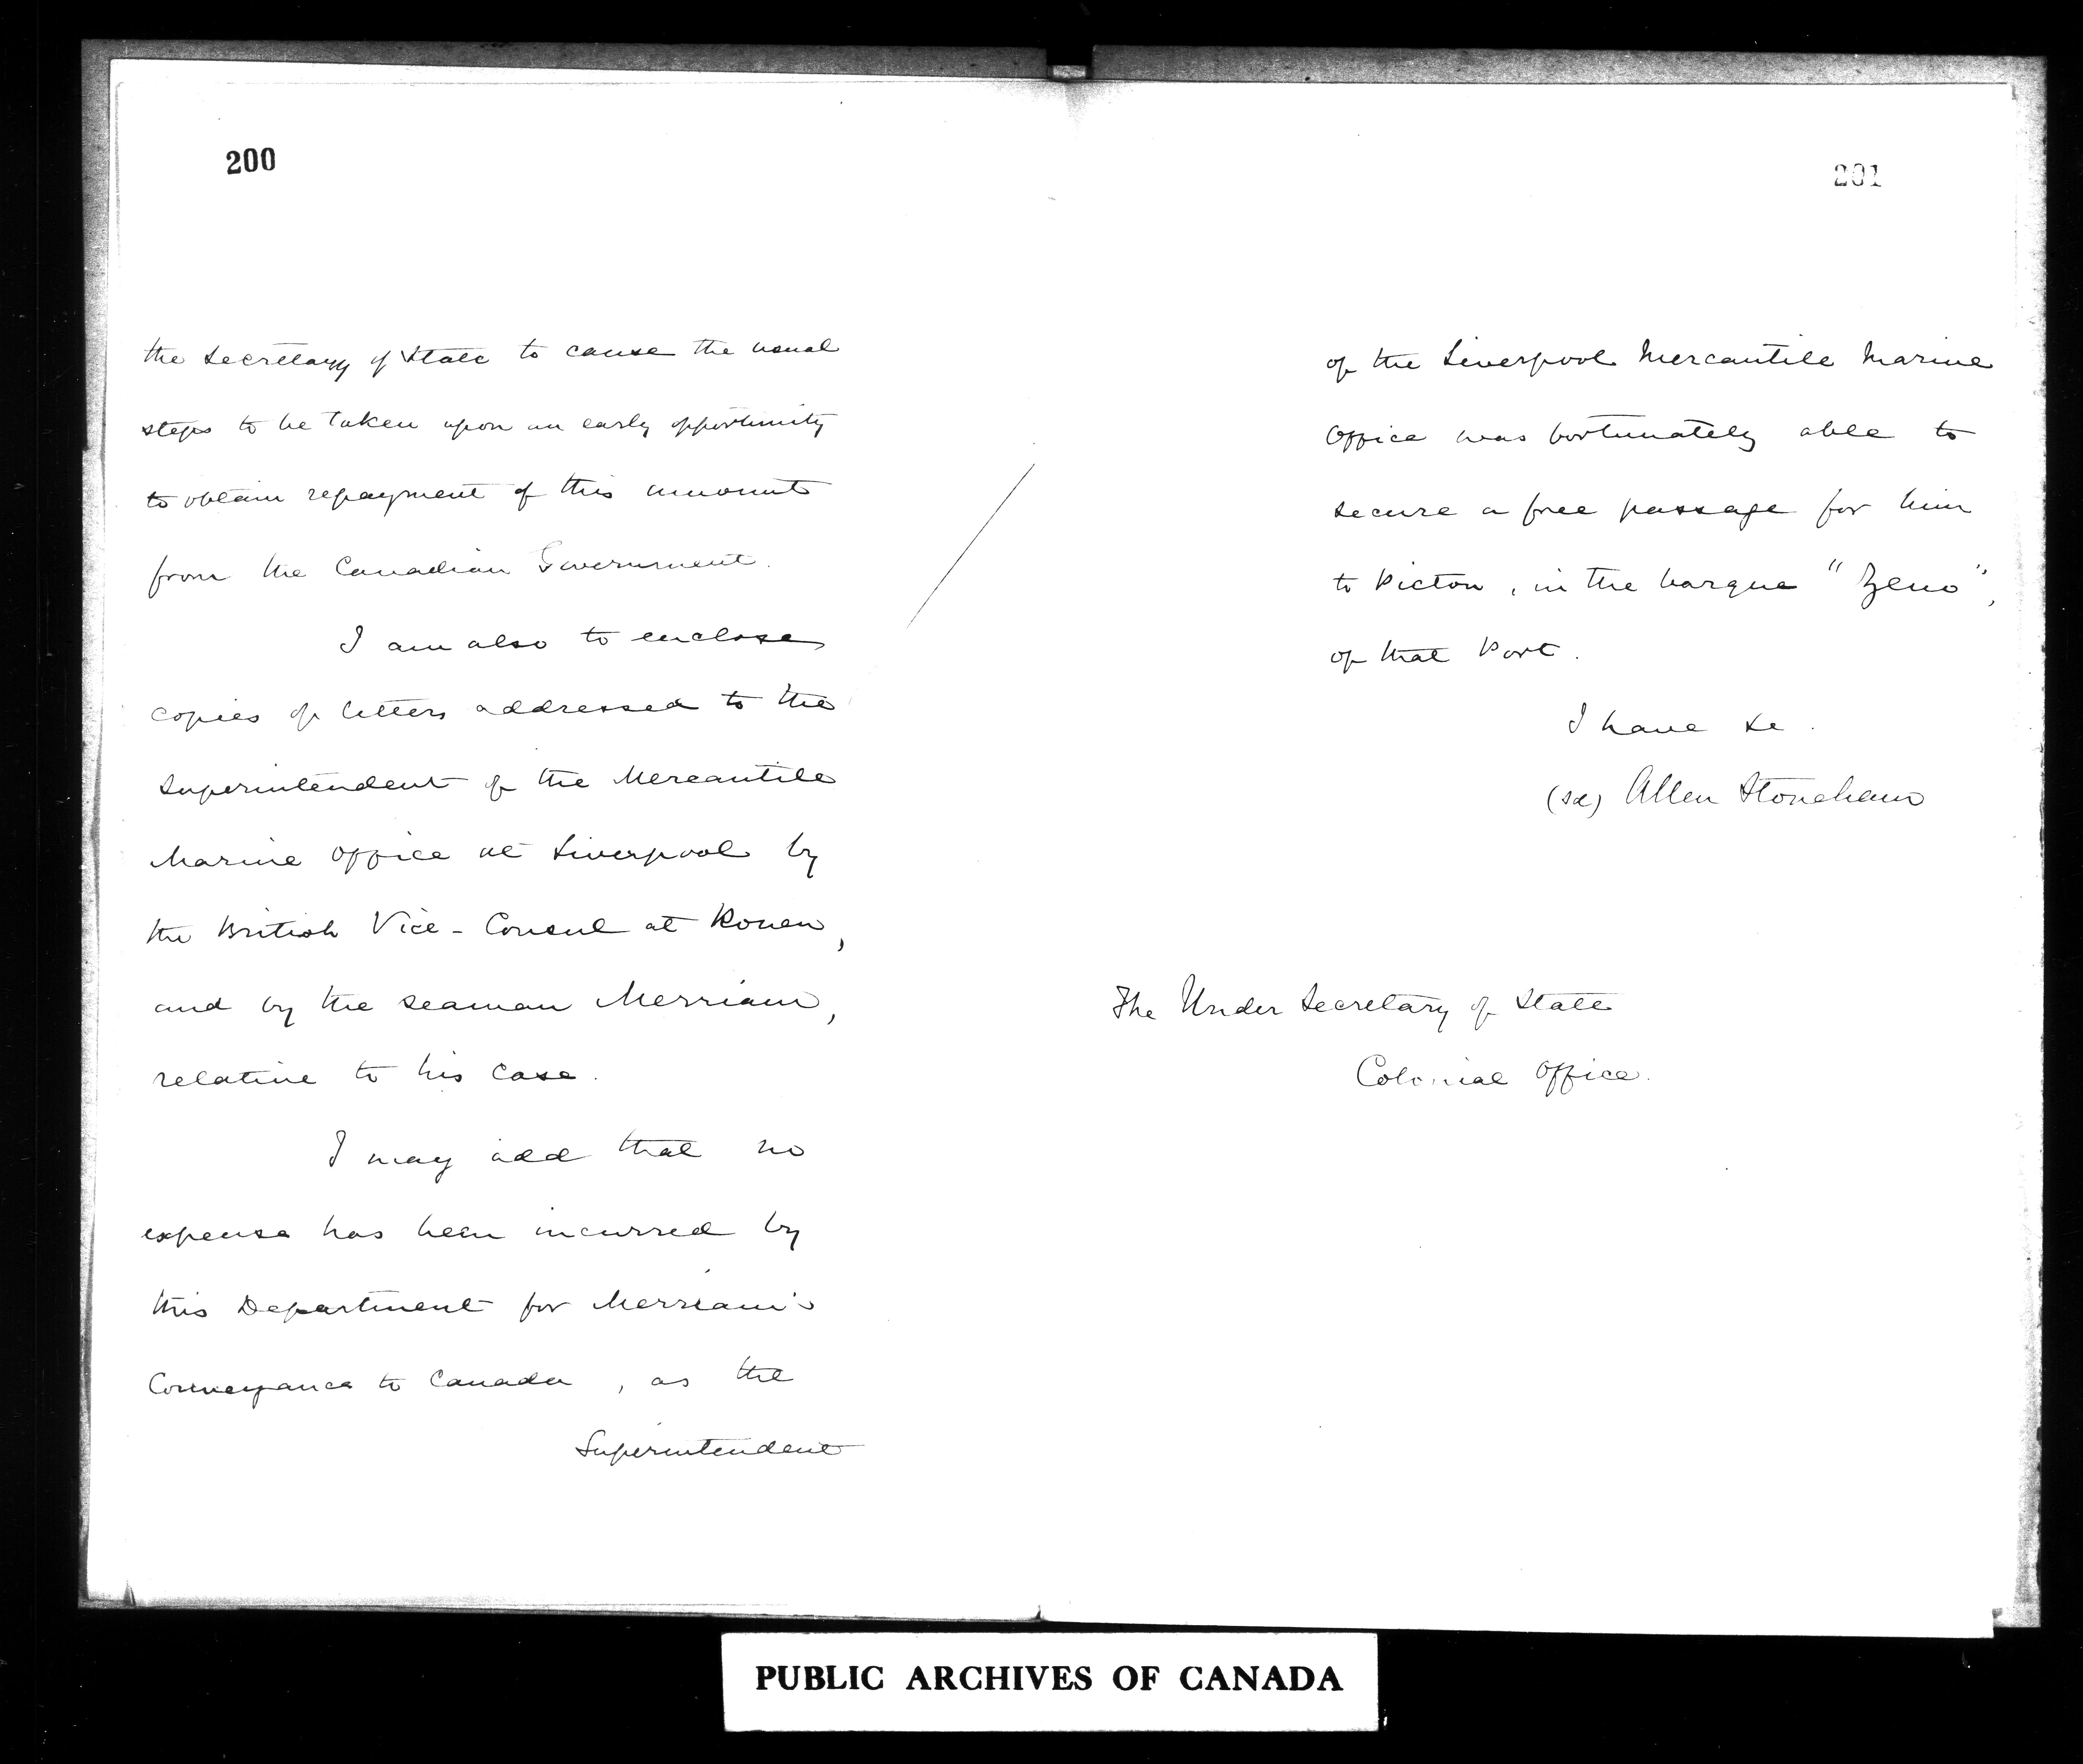 200
the Secretary of State to cause the usual
steps to be taken upon an early opportunity
to obtain repayment of this amount
from the Canadian Government.
I am also to enclose
copies of letters addressed to the
Superintendent of the Mercantile
Marine Office at Liverpool by
the British Vice-Consul at Rouen,
and by the seaman Merriam,
relative to his case.
I may add that no
expense has been incurred by
this Department for Merriam's
Conveyance to Canada, as the
Superintendent
201
of the Liverpool Mercantile Marine
Office was fortunately able to
secure a free passage for him
to Pictou, in the barque "Zeno",
of that Port.
I have &c.
(sd) Allen Stoneham
The Under Secretary of State
Colonial Office.
PUBLIC ARCHIVES OF CANADA